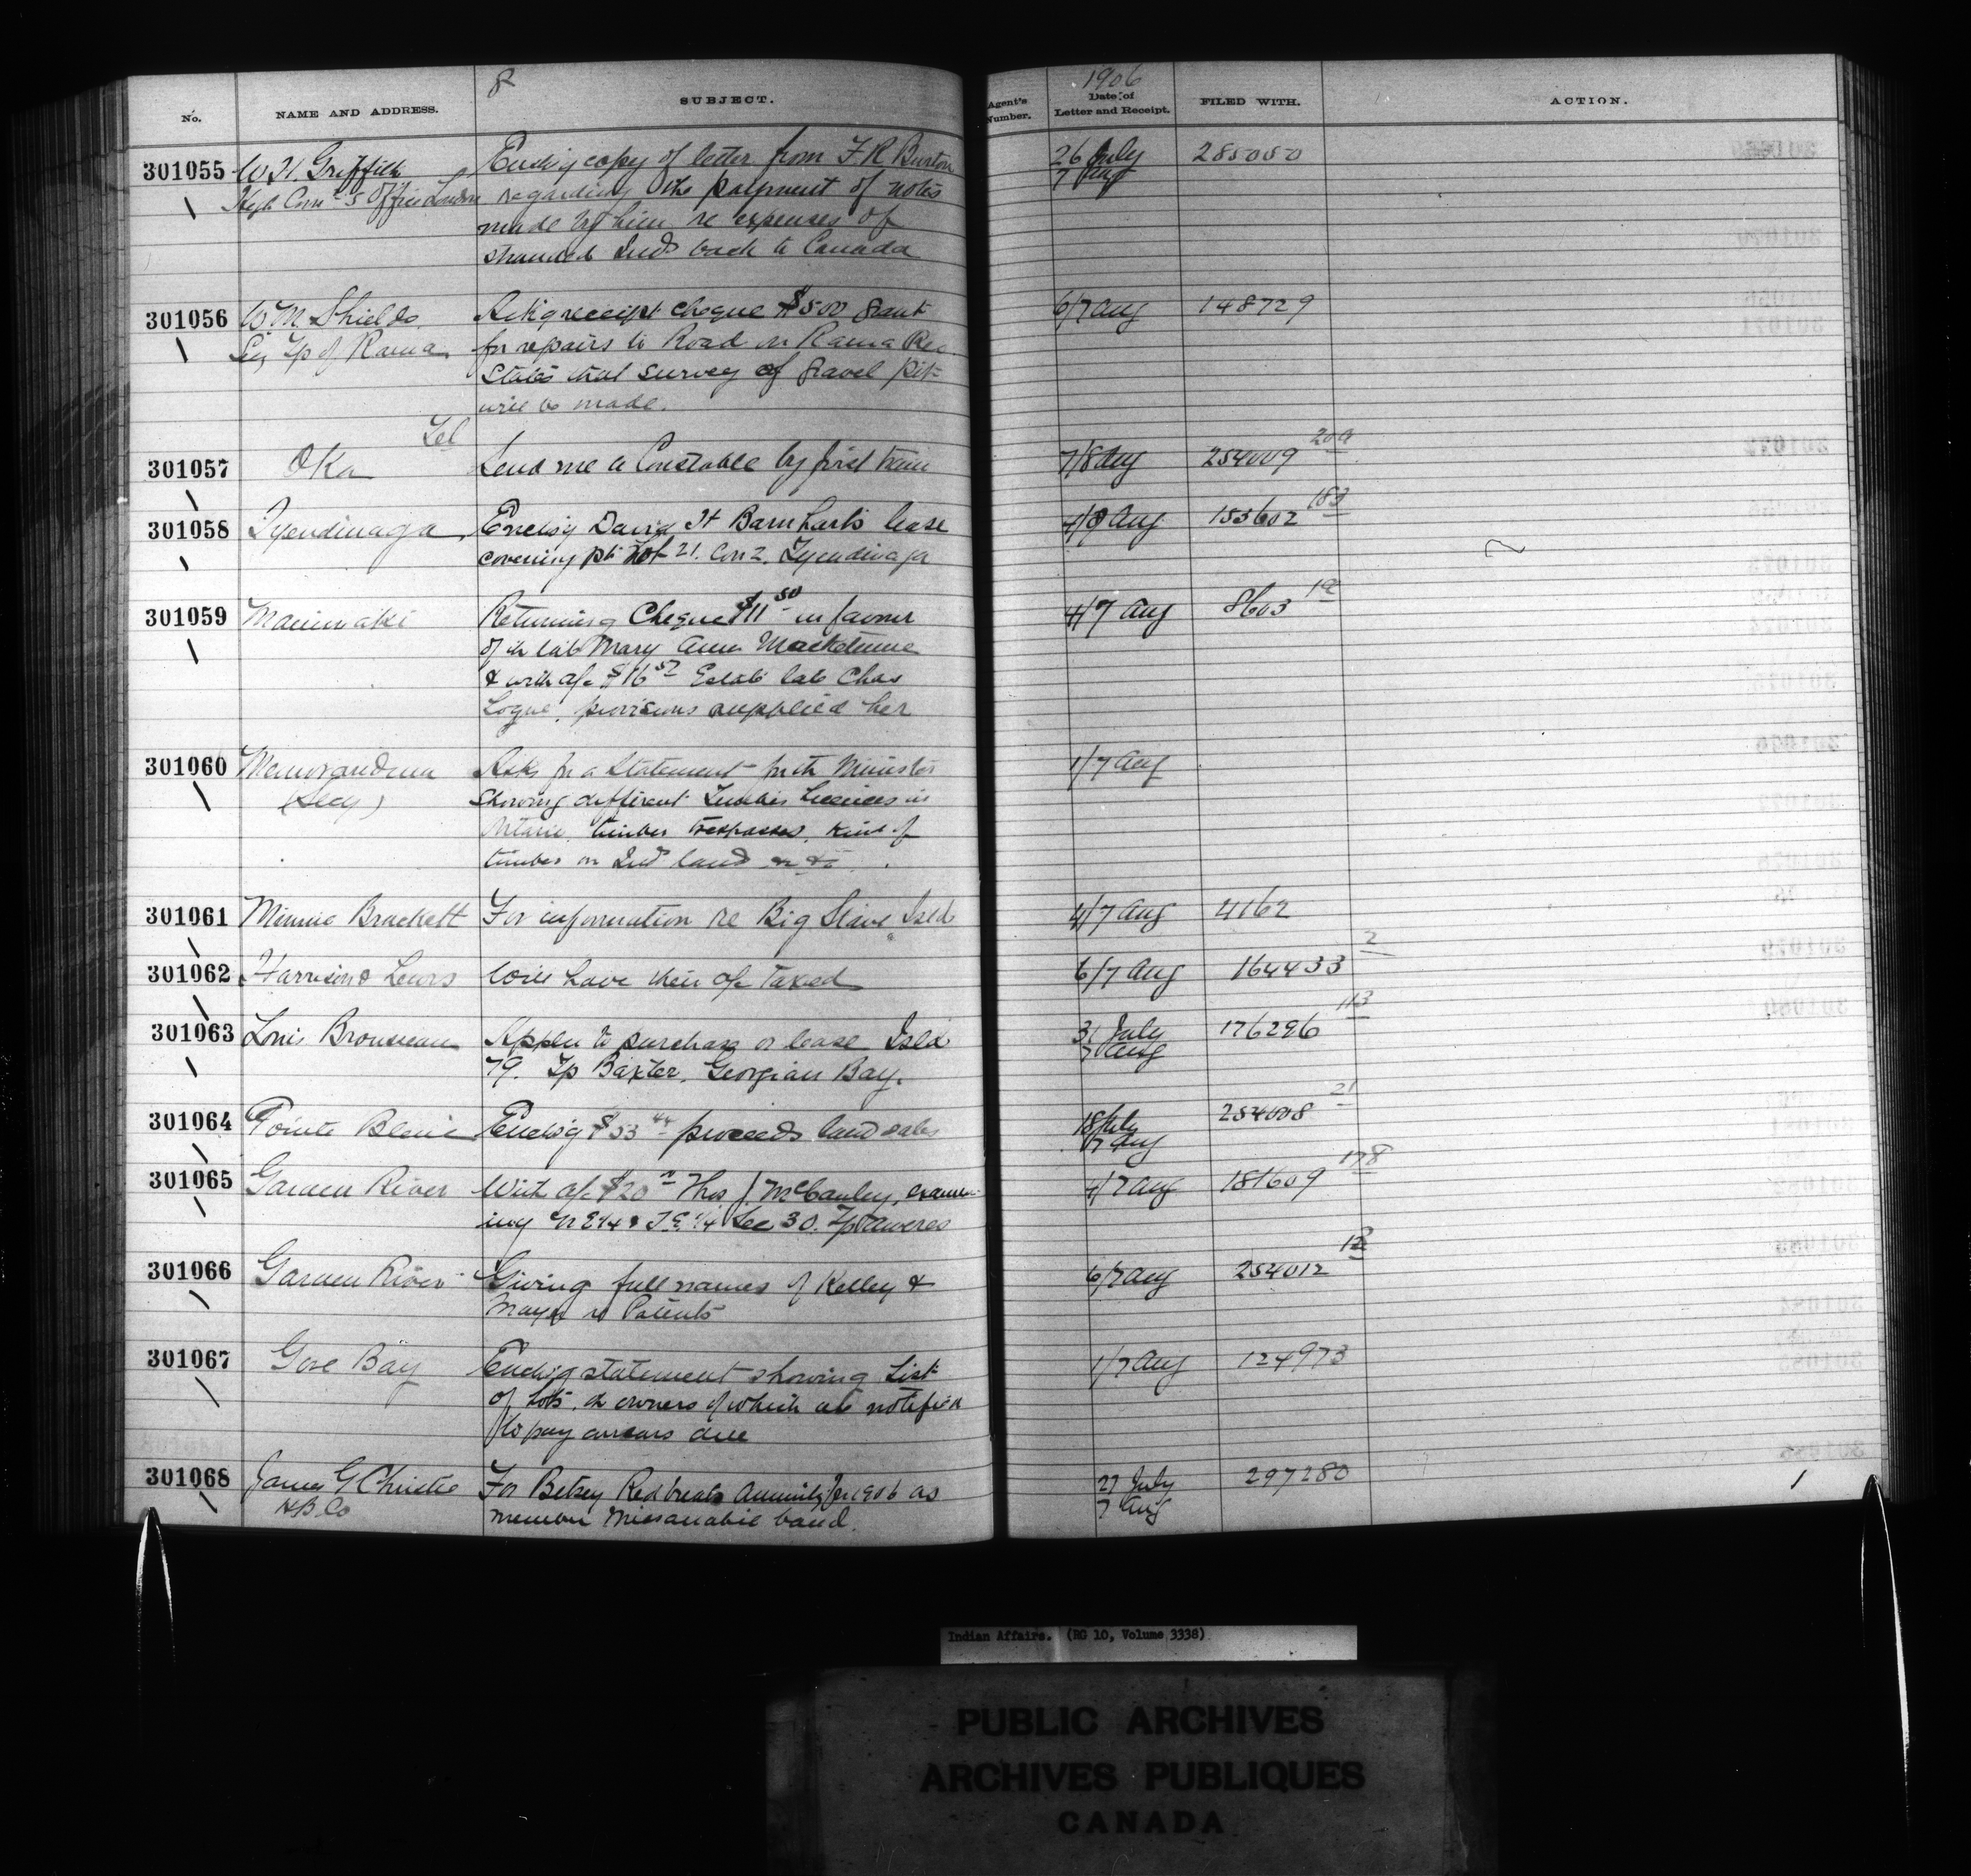 8
1906
No.
NAME AND ADDRESS.
SUBJECT.
Agent's Number.
Date of Letter and Receipt.
FILED WITH.
ACTION.
301055 W H. Griffith Enclsg copy of letter from F R Burton 26 July 285050
High Com's Office London regarding the payment of notes 7 Aug
made by him re expenses of
stranded Inds back to Canada
301056 W. M. Shields Ackg receipt cheque $500 grant 6/7 Aug 148729
Tp of Rama for repairs to Road on Rama Res
States that survey of gravel pit
will be made.
Tel
301057 Oka Send me a Constable by first train 7/8 Aug 254009
301058 Tyendinaga Enclsg David H Barnharts lease 4/9 Aug 155602 183
covering pt Lot 21. Con 2. Tyendinaga
301059 Maniwaki Returning Cheque $11 50 in favour 4/7 Aug 8603
of the late Mary Ann
& with a/c $16 57 Estate late Chas
Logue, provisions supplied her
301060 Memorandum Asks for a Statement for the Minister 1/7 Aug
(Secy) showing different Timber Licences in
Ontario, timber trespasses, kind of
timber on Ind land
301061 Minnie Brackett For information re Big Isld 4/7 Aug 4162
301062 Harrison & Lewis Will have their a/c taxed 6/7 Aug 164433 2
301063 Louis Brousseau Appln to purchase or lease Isld 31 July 176296 113
79. Tp Baxter, Georgian Bay. 7 Aug
301064 Pointe Bleue Enclsg $53 proceeds land sales 18 July 254008 21
7 Aug
301065 Garden River With a/c $20 Thos J. McCauley, examin- 4/7 Aug 181609 178
ing N E 1/4 & S E 1/4 Sec 30. Tp Aweres
301066 Garden River Giving full names of Kelley & 6/7 Aug 254012
re Patents
301067 Gore Bay Enclsg statement showing List 1/7 Aug 124973
of Lots, the owners of which are notified
to pay arrears due
301068 James G Christie For Betsey Redbreasts Annuity for 1906 as 27 July 297280
H B. Co member Missanabie band. 7 Aug
Indian Affairs. (RG 10, Volume 3338)
PUBLIC ARCHIVES
ARCHIVES PUBLIQUES
CANADA